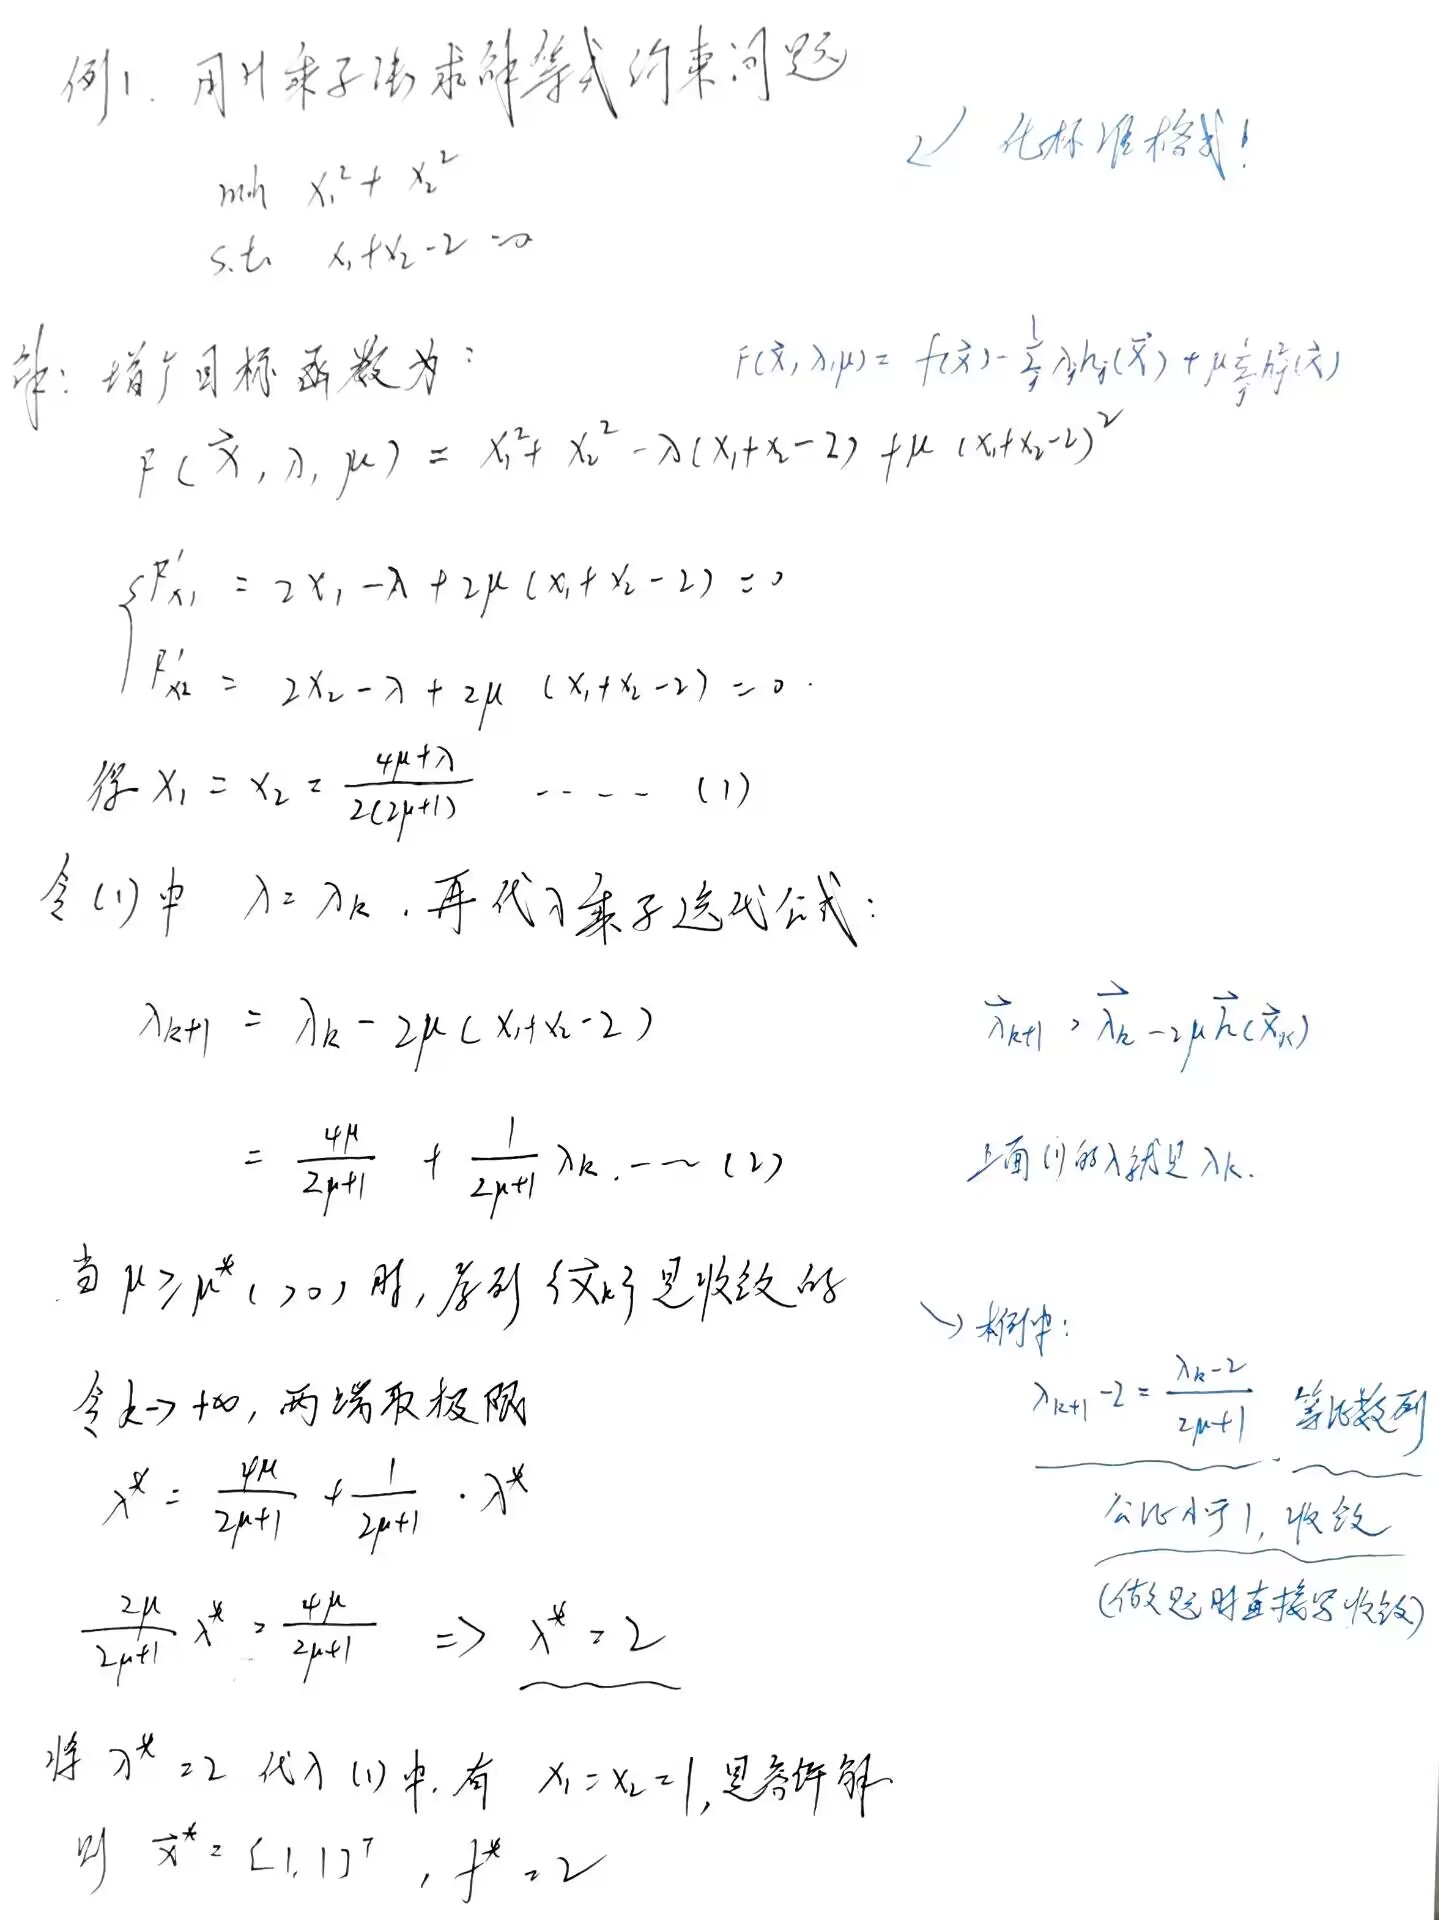 例1. 用H乘子法求解等式约束问题
✓ 化标准格式!
min x₁² + x₂²
s.t. x₁+x₂-2=0
解: 增广目标函数为:
F(x⃗, λ, μ) = f(x⃗) - Σⱼ λⱼhⱼ(x⃗) + μ Σⱼ hⱼ²(x⃗)
F(x⃗, λ, μ) = x₁² + x₂² - λ(x₁+x₂-2) + μ(x₁+x₂-2)²
F'x₁ = 2x₁ - λ + 2μ(x₁+x₂-2) = 0
F'x₂ = 2x₂ - λ + 2μ(x₁+x₂-2) = 0.
得 x₁ = x₂ = (4μ+λ)/(2(2μ+1)) ---- (1)
令(1)中 λ=λₖ, 再代入乘子迭代公式:
λₖ₊₁ = λₖ - 2μ(x₁+x₂-2)
λ⃗ₖ₊₁ = λ⃗ₖ - 2μh⃗(x⃗ₖ)
= 4μ/(2μ+1) + 1/(2μ+1) λₖ. --- (2)
上面(1)的λ就是λₖ.
当 μ≥μ*(>0)时, 序列{x⃗ₖ}是收敛的
↘ 本例中:
令k→+∞, 两端取极限
λₖ₊₁-2 = (λₖ-2)/(2μ+1). 等比数列
λ* = 4μ/(2μ+1) + 1/(2μ+1) · λ*
公比小于1, 收敛
(做题时直接写收敛)
2μ/(2μ+1) λ* = 4μ/(2μ+1) => λ* = 2
将 λ*=2 代入(1)中, 有 x₁=x₂=1, 是容许解
则 x⃗* = [1,1]ᵀ, f* = 2